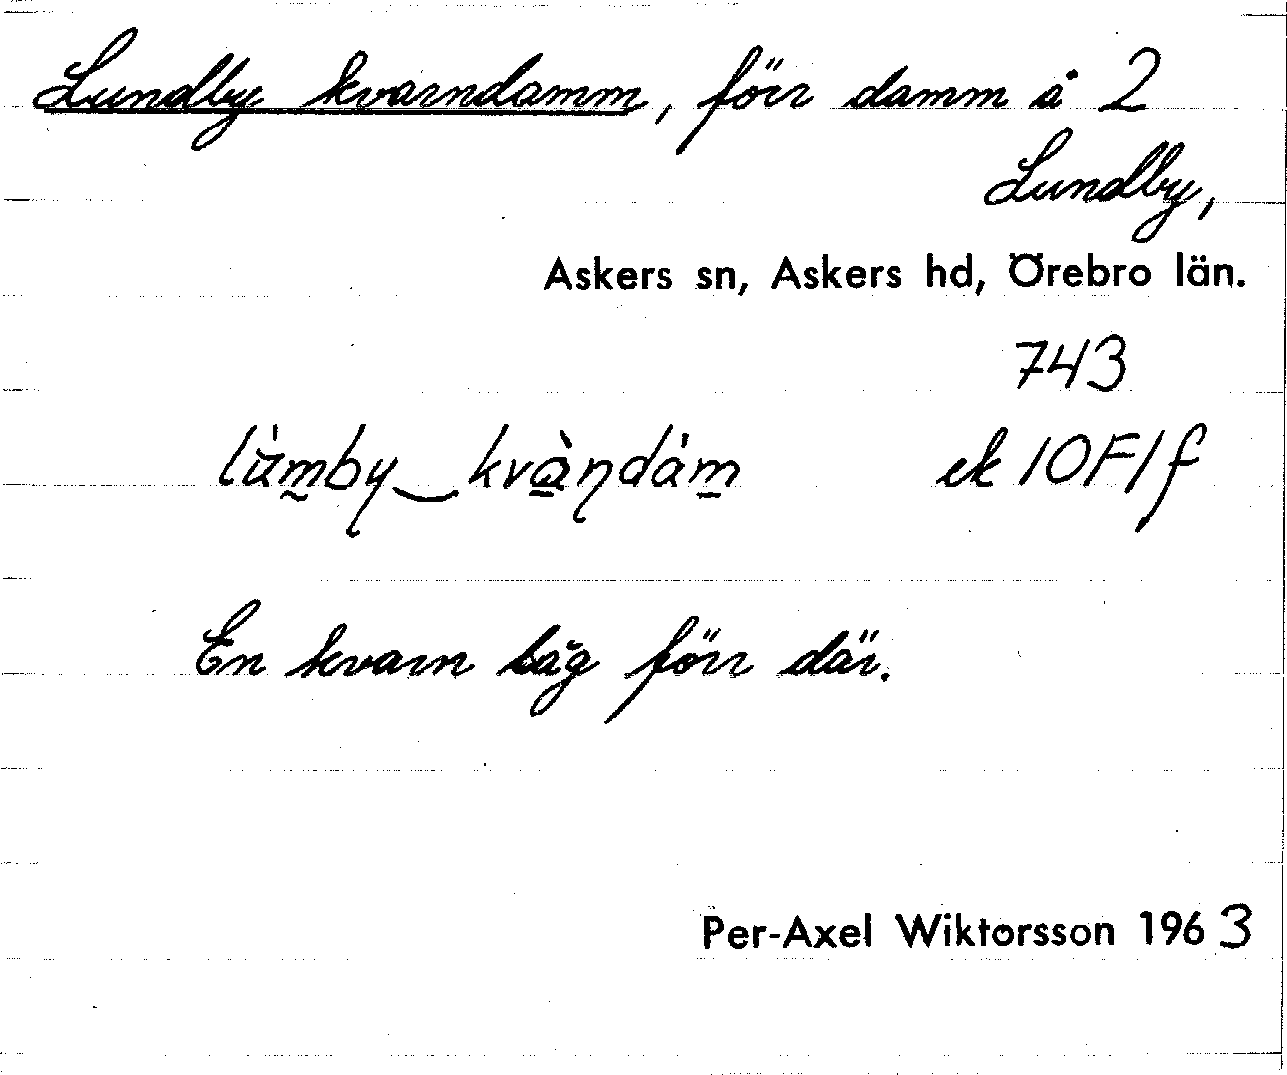 Lundby kvarndamm, förr damm å 2
Lundby,
Askers sn, Askers hd, Örebro län.
743
lùm̰by‿kvà̱ɳdàm̱ ek 10F1f
En kvarn låg förr där.
Per-Axel Wiktorsson 1963